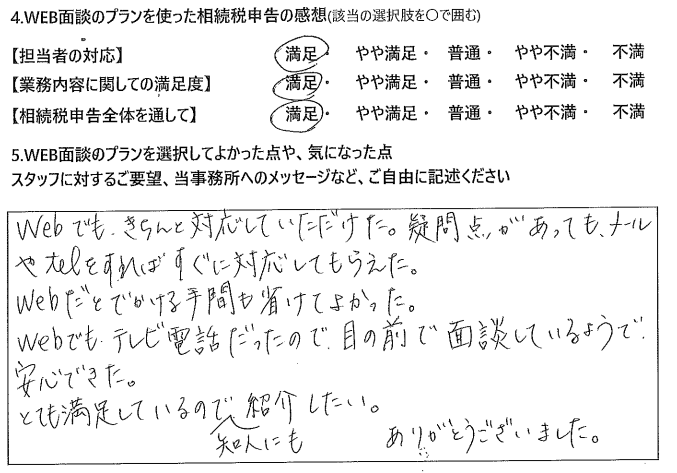 4.WEB面談のプランを使った相続税申告の感想(該当の選択肢を〇で囲む)
【担当者の対応】 満足・ やや満足・ 普通・ やや不満・ 不満
【業務内容に関しての満足度】 満足・ やや満足・ 普通・ やや不満・ 不満
【相続税申告全体を通して】 満足・ やや満足・ 普通・ やや不満・ 不満
5.WEB面談のプランを選択してよかった点や、気になった点
スタッフに対するご要望、当事務所へのメッセージなど、ご自由に記述ください
Webでも、きちんと対応していただけた。疑問点があっても、メール
やtelをすればすぐに対応してもらえた。
Webだとでかける手間も省けてよかった。
Webでも、テレビ電話だったので、目の前で面談しているようで、
安心できた。
とても満足しているので、紹介したい。
知人にも ありがとうございました。